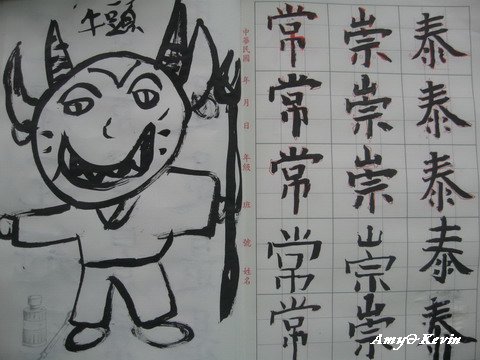 泰泰泰泰泰
崇崇崇崇崇
常常常常常
中華民國 年 月 日 年級 班 號 姓名
牛頭
Amy∂Kevin